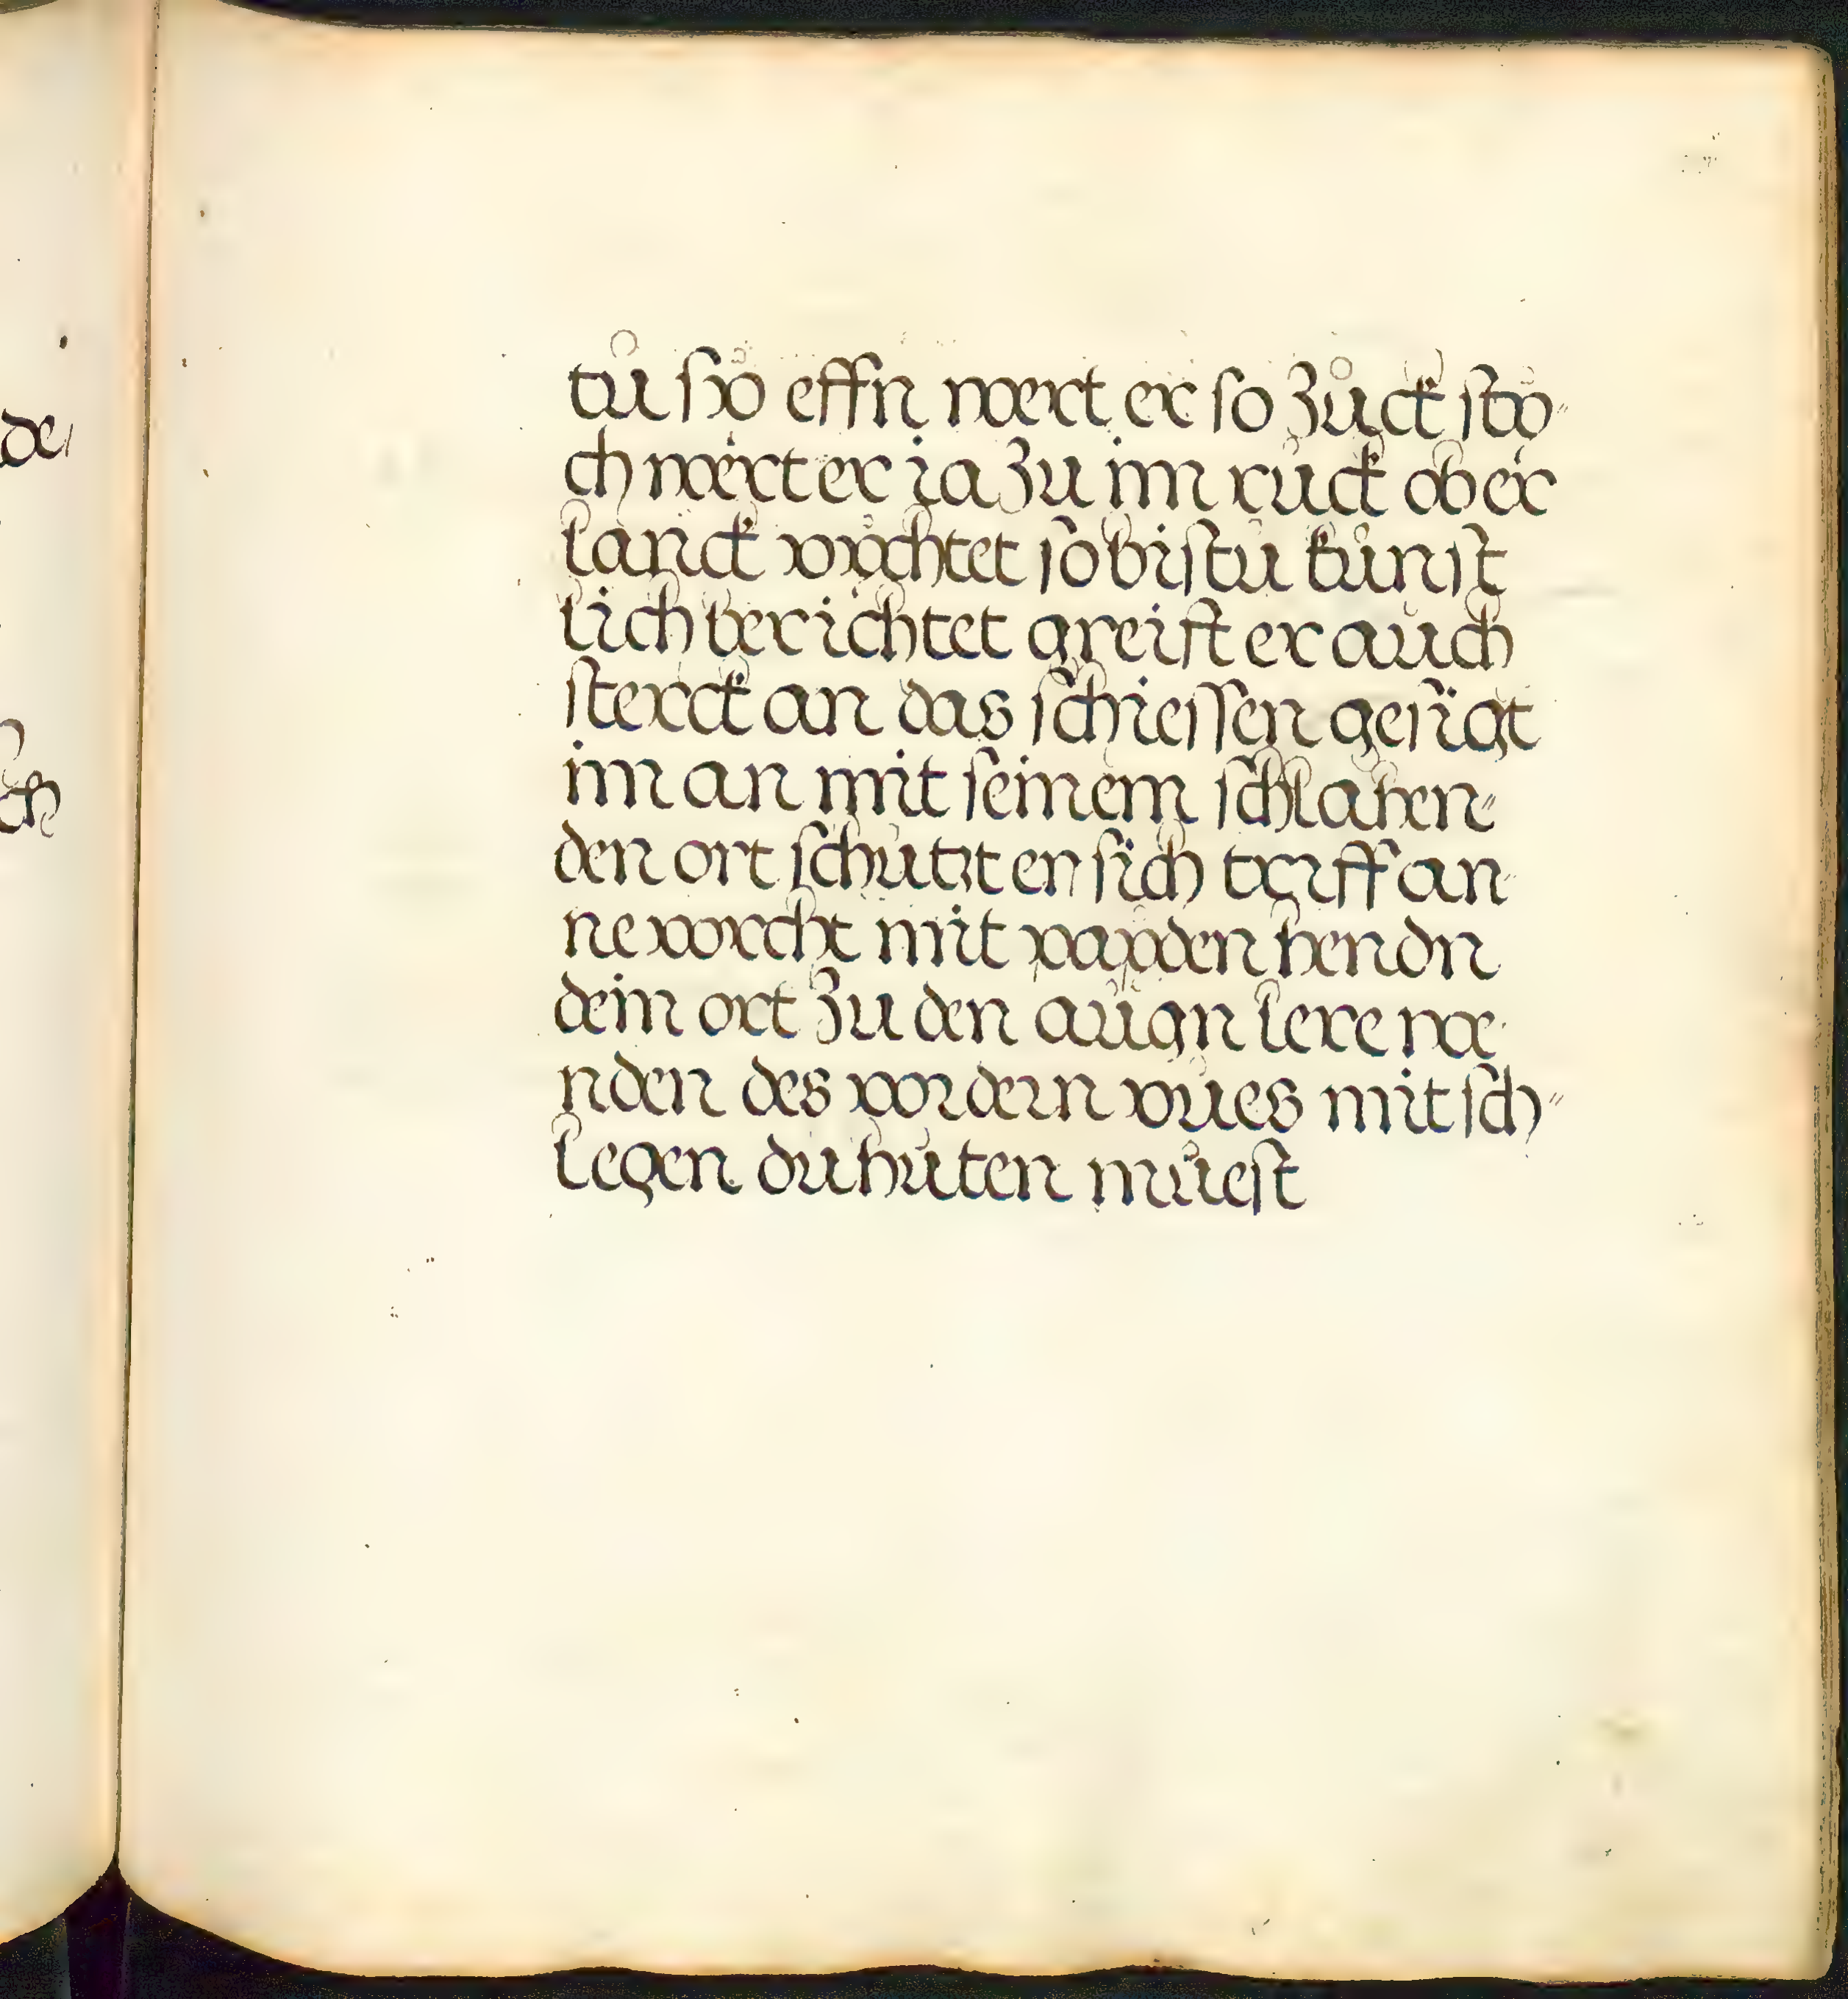 tů sÿo effn wert er so Zůck stö„
ch wert er ia Zu im rück ob er
lanck vichtet so bistu künst
lich berichtet greift er auch
sterck an das schiessen gesigt
im an mit seinem schlahen„
den ort schützt er sich triff an
ne vorcht mit paÿden hendn
dein ort Zu den augn lere we
nden des vordern vües mit sch„
legen du hüten müest